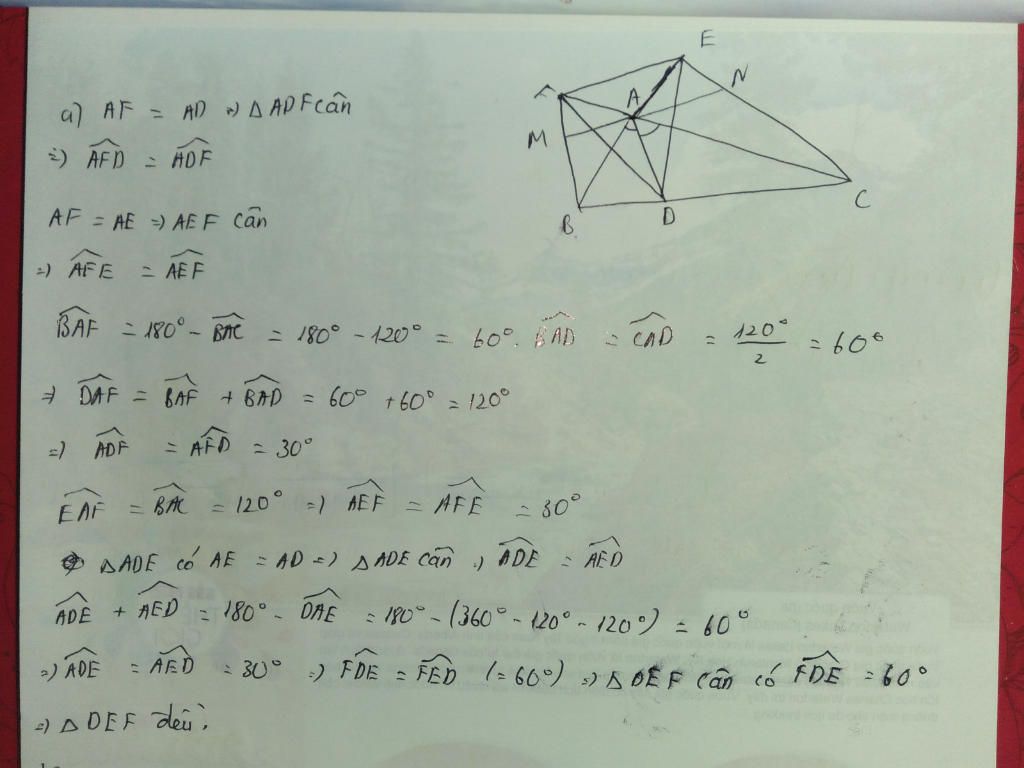 a) AF = AD => △ADF cân
=> AFD = ADF
AF = AE => AEF cân
=> AFE = AEF
BAF = 180° - BAC = 180° - 120° = 60°. BAD = CAD = 120°/2 = 60°
=> DAF = BAF + BAD = 60° + 60° = 120°
=> ADF = AFD = 30°
EAF = BAC = 120° => AEF = AFE = 30°
△ADE có AE = AD => △ADE cân => ADE = AED
ADE + AED = 180° - DAE = 180° - (360° - 120° - 120°) = 60°
=> ADE = AED = 30° => FDE = FED (= 60°) => △DEF cân có FDE = 60°
=> △DEF đều.
E
N
A
M
B
D
C